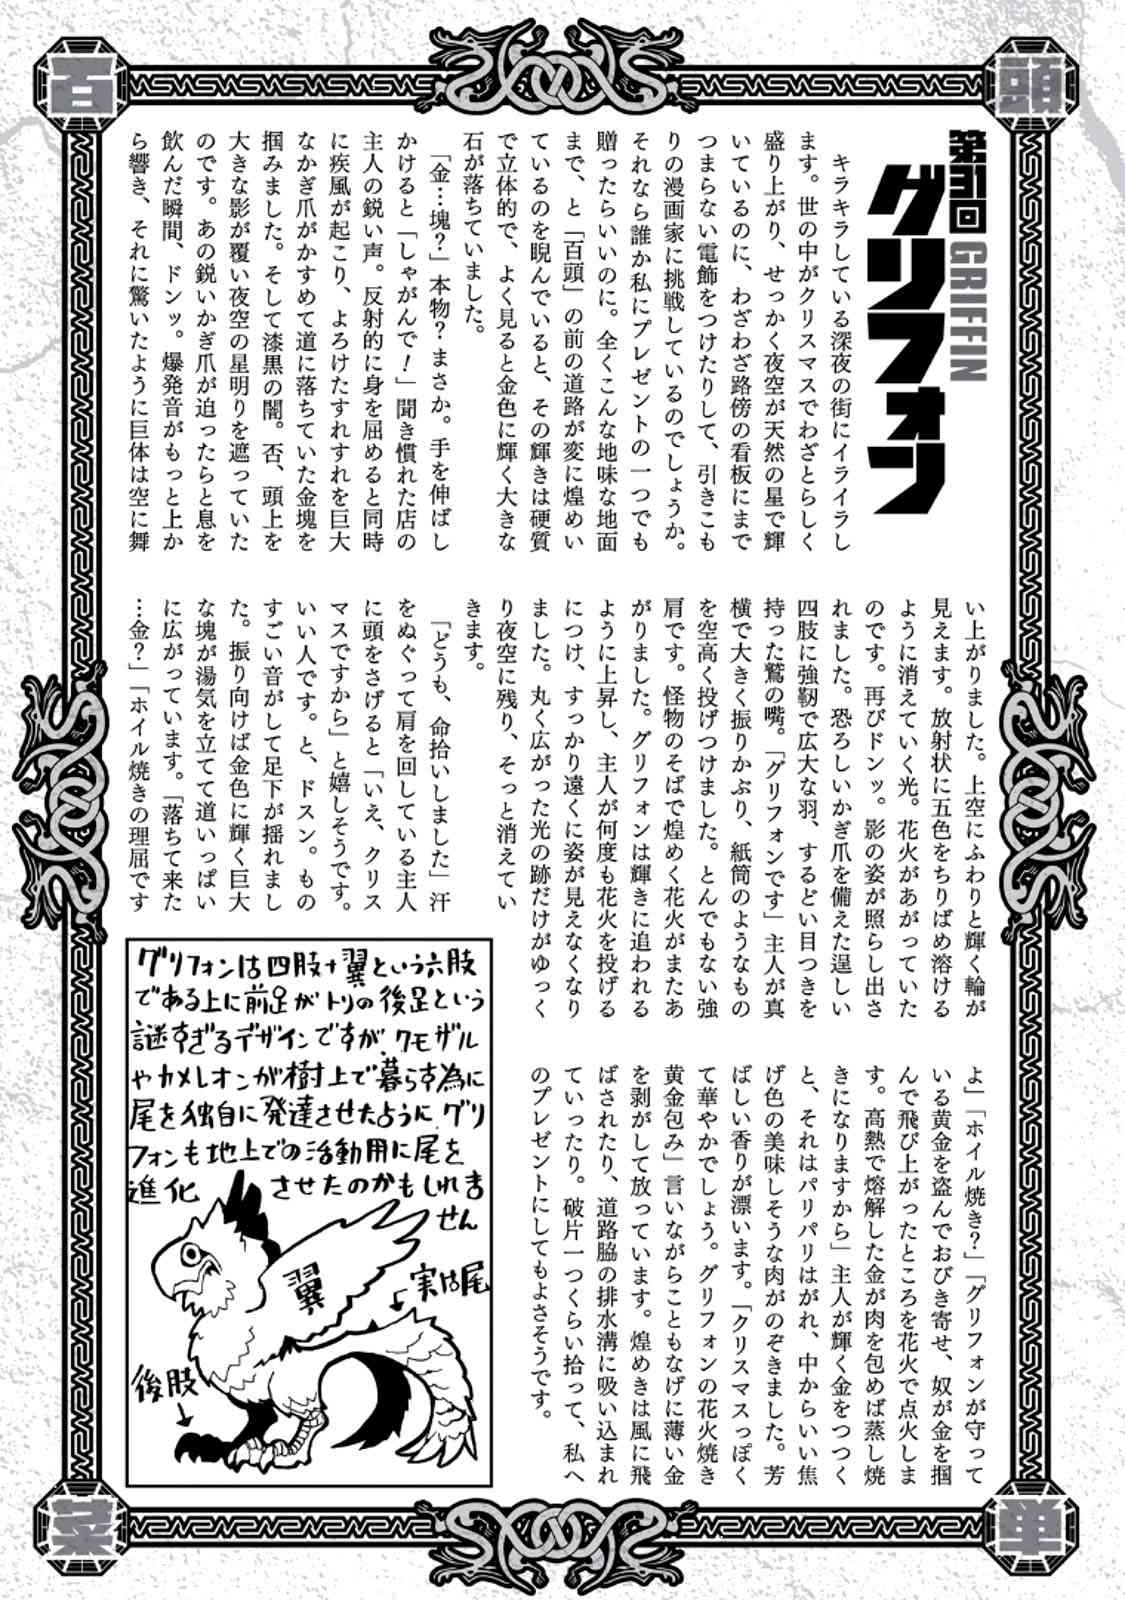 百
頭
第31回 GRIFFIN
グリフォン
キラキラしている深夜の街にイライラし
ます。世の中がクリスマスでわざとらしく
盛り上がり、せっかく夜空が天然の星で輝
いているのに、わざわざ路傍の看板にまで
つまらない電飾をつけたりして、引きこも
りの漫画家に挑戦しているのでしょうか。
それなら誰か私にプレゼントの一つでも
贈ったらいいのに。全くこんな地味な地面
まで、と「百頭」の前の道路が変に煌めい
ているのを睨んでいると、その輝きは硬質
で立体的で、よく見ると金色に輝く大きな
石が落ちていました。
「金…塊？」本物？まさか。手を伸ばし
かけると「しゃがんで！」聞き慣れた店の
主人の鋭い声。反射的に身を屈めると同時
に疾風が起こり、よろけたすれすれを巨大
なかぎ爪がかすめて道に落ちていた金塊を
掴みました。そして漆黒の闇。否、頭上を
大きな影が覆い夜空の星明りを遮っていた
のです。あの鋭いかぎ爪が迫ったらと息を
飲んだ瞬間、ドンッ。爆発音がもっと上か
ら響き、それに驚いたように巨体は空に舞
い上がりました。上空にふわりと輝く輪が
見えます。放射状に五色をちりばめ溶ける
ように消えていく光。花火があがっていた
のです。再びドンッ。影の姿が照らし出さ
れました。恐ろしいかぎ爪を備えた逞しい
四肢に強靭で広大な羽、するどい目つきを
持った鷲の嘴。「グリフォンです」主人が真
横で大きく振りかぶり、紙筒のようなもの
を空高く投げつけました。とんでもない強
肩です。怪物のそばで煌めく花火がまたあ
がりました。グリフォンは輝きに追われる
ように上昇し、主人が何度も花火を投げる
につけ、すっかり遠くに姿が見えなくなり
ました。丸く広がった光の跡だけがゆっく
り夜空に残り、そっと消えてい
きます。
「どうも、命拾いしました」汗
をぬぐって肩を回している主人
に頭をさげると「いえ、クリス
マスですから」と嬉しそうです。
いい人です。と、ドスン。もの
すごい音がして足下が揺れまし
た。振り向けば金色に輝く巨大
な塊が湯気を立てて道いっぱい
に広がっています。「落ちて来た
…金？」「ホイル焼きの理屈です
よ」「ホイル焼き？」「グリフォンが守って
いる黄金を盗んでおびき寄せ、奴が金を掴
んで飛び上がったところを花火で点火しま
す。高熱で熔解した金が肉を包めば蒸し焼
きになりますから」主人が輝く金をつつく
と、それはパリパリはがれ、中からいい焦
げ色の美味しそうな肉がのぞきました。芳
ばしい香りが漂います。「クリスマスっぽく
て華やかでしょう。グリフォンの花火焼き
黄金包み」言いながらこともなげに薄い金
を剥がして放っています。煌めきは風に飛
ばされたり、道路脇の排水溝に吸い込まれ
ていったり。破片一つくらい拾って、私へ
のプレゼントにしてもよさそうです。
グリフォンは四肢+翼という六肢
である上に前足がトリの後足という
謎すぎるデザインですが、クモザル
やカメレオンが樹上で暮らす為に
尾を独自に発達させたように、グリ
フォンも地上での活動用に尾を
進化 させたのかもしれま
せん
翼
実は尾
後肢
菜
単